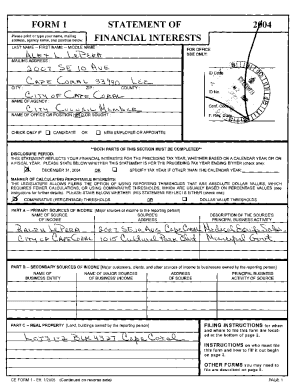 FORM 1 STATEMENT OF 2004
FINANCIAL INTERESTS
Please print or type your name, mailing
address, agency name, and position below:
LAST NAME -- FIRST NAME -- MIDDLE NAME:
FOR OFFICE
USE ONLY:
MAILING ADDRESS:
2027 SE 10 AVE
CAPE CORAL 33990 LEE
CITY: ZIP: COUNTY:
CITY OF CAPE CORAL
NAME OF AGENCY:
CITY COUNCIL MEMBER
NAME OF OFFICE OR POSITION HELD OR SOUGHT:
CHECK ONLY IF CANDIDATE OR NEW EMPLOYEE OR APPOINTEE
**BOTH PARTS OF THIS SECTION MUST BE COMPLETED**
DISCLOSURE PERIOD:
THIS STATEMENT REFLECTS YOUR FINANCIAL INTERESTS FOR THE PRECEDING TAX YEAR, WHETHER BASED ON A CALENDAR YEAR OR ON
A FISCAL YEAR. PLEASE STATE BELOW WHETHER THIS STATEMENT IS FOR THE PRECEDING TAX YEAR ENDING EITHER (check one):
DECEMBER 31, 2004 OR SPECIFY TAX YEAR IF OTHER THAN THE CALENDAR YEAR:
MANNER OF CALCULATING REPORTABLE INTERESTS:
THE LEGISLATURE ALLOWS FILERS THE OPTION OF USING REPORTING THRESHOLDS THAT ARE ABSOLUTE DOLLAR VALUES, WHICH
REQUIRES FEWER CALCULATIONS, OR USING COMPARATIVE THRESHOLDS, WHICH ARE USUALLY BASED ON PERCENTAGE VALUES (see
instructions for further details). PLEASE STATE BELOW WHETHER THIS STATEMENT REFLECTS EITHER (check one):
COMPARATIVE (PERCENTAGE) THRESHOLDS OR DOLLAR VALUE THRESHOLDS
PART A -- PRIMARY SOURCES OF INCOME [Major sources of income to the reporting person]
NAME OF SOURCE OF INCOME SOURCE'S ADDRESS DESCRIPTION OF THE SOURCE'S PRINCIPAL BUSINESS ACTIVITY
2027 SE 10 AVE Cape Coral
CITY OF CAPE CORAL 1015 Cultural Park Blvd Municipal Govt
PART B -- SECONDARY SOURCES OF INCOME [Major customers, clients, and other sources of income to businesses owned by the reporting person]
NAME OF BUSINESS ENTITY NAME OF MAJOR SOURCES OF BUSINESS' INCOME ADDRESS OF SOURCE PRINCIPAL BUSINESS ACTIVITY OF SOURCE
PART C -- REAL PROPERTY [Land, buildings owned by the reporting person]
Cape Coral
FILING INSTRUCTIONS for when
and where to file this form are located
at the bottom of page 2.
INSTRUCTIONS on who must file
this form and how to fill it out begin
on page 3.
OTHER FORMS you may need to
file are described on page 6.
CE FORM 1 - Eff. 1/2005 (Continued on reverse side) PAGE 1